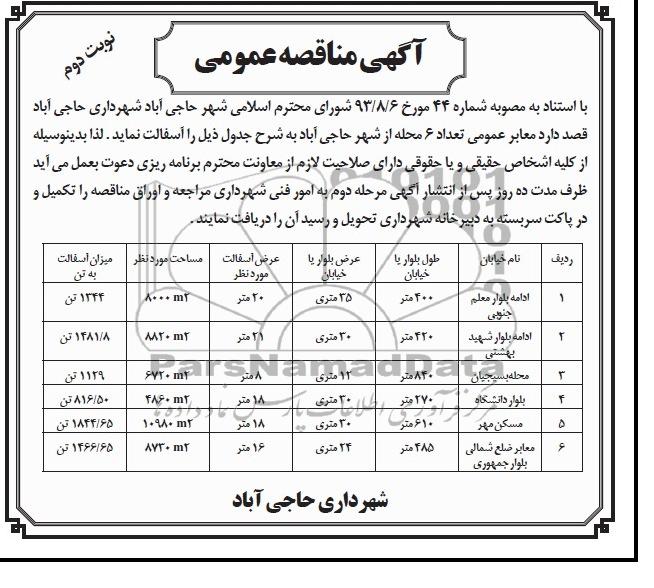 نوبت دوم
آگهی مناقصه عمومی
با استناد به مصوبه شماره ۴۴ مورخ ۹۳/۸/۶ شورای محترم اسلامی شهر حاجی آباد شهرداری حاجی آباد
قصد دارد معابر عمومی تعداد ۶ محله از شهر حاجی آباد به شرح جدول ذیل را آسفالت نماید . لذا بدینوسیله
از کلیه اشخاص حقیقی و یا حقوقی دارای صلاحیت لازم از معاونت محترم برنامه ریزی دعوت بعمل می آید
ظرف مدت ده روز پس از انتشار آگهی مرحله دوم به امور فنی شهرداری مراجعه و اوراق مناقصه را تکمیل و
در پاکت سربسته به دبیرخانه شهرداری تحویل و رسید آن را دریافت نمایند .
ردیف نام خیابان طول بلوار یا خیابان عرض بلوار یا خیابان عرض آسفالت مورد نظر مساحت مورد نظر میزان آسفالت به تن
۱ ادامه بلوار معلم جنوبی ۴۰۰ متر ۳۵ متری ۲۰ متر ۸۰۰۰ m۲ ۱۳۴۴ تن
۲ ادامه بلوار شهید بهشتی ۴۲۰ متر ۳۰ متری ۲۱ متر ۸۸۲۰ m۲ ۱۴۸۱/۸ تن
۳ محله بسیجیان ۸۴۰ متر ۱۲ متری ۸ متر ۶۷۲۰ m۲ ۱۱۲۹ تن
۴ بلوار دانشگاه ۲۷۰ متر ۳۰ متری ۱۸ متر ۴۸۶۰ m۲ ۸۱۶/۵۰ تن
۵ مسکن مهر ۶۱۰ متر ۳۰ متری ۱۸ متر ۱۰۹۸۰ m۲ ۱۸۴۴/۶۵ تن
۶ معابر ضلع شمالی بلوار جمهوری ۴۸۵ متر ۲۴ متری ۱۶ متر ۸۷۳۰ m۲ ۱۴۶۶/۶۵ تن
ParsNamadData
مرکز فرآوری اطلاعات پارس نماد داده ها
شهرداری حاجی آباد